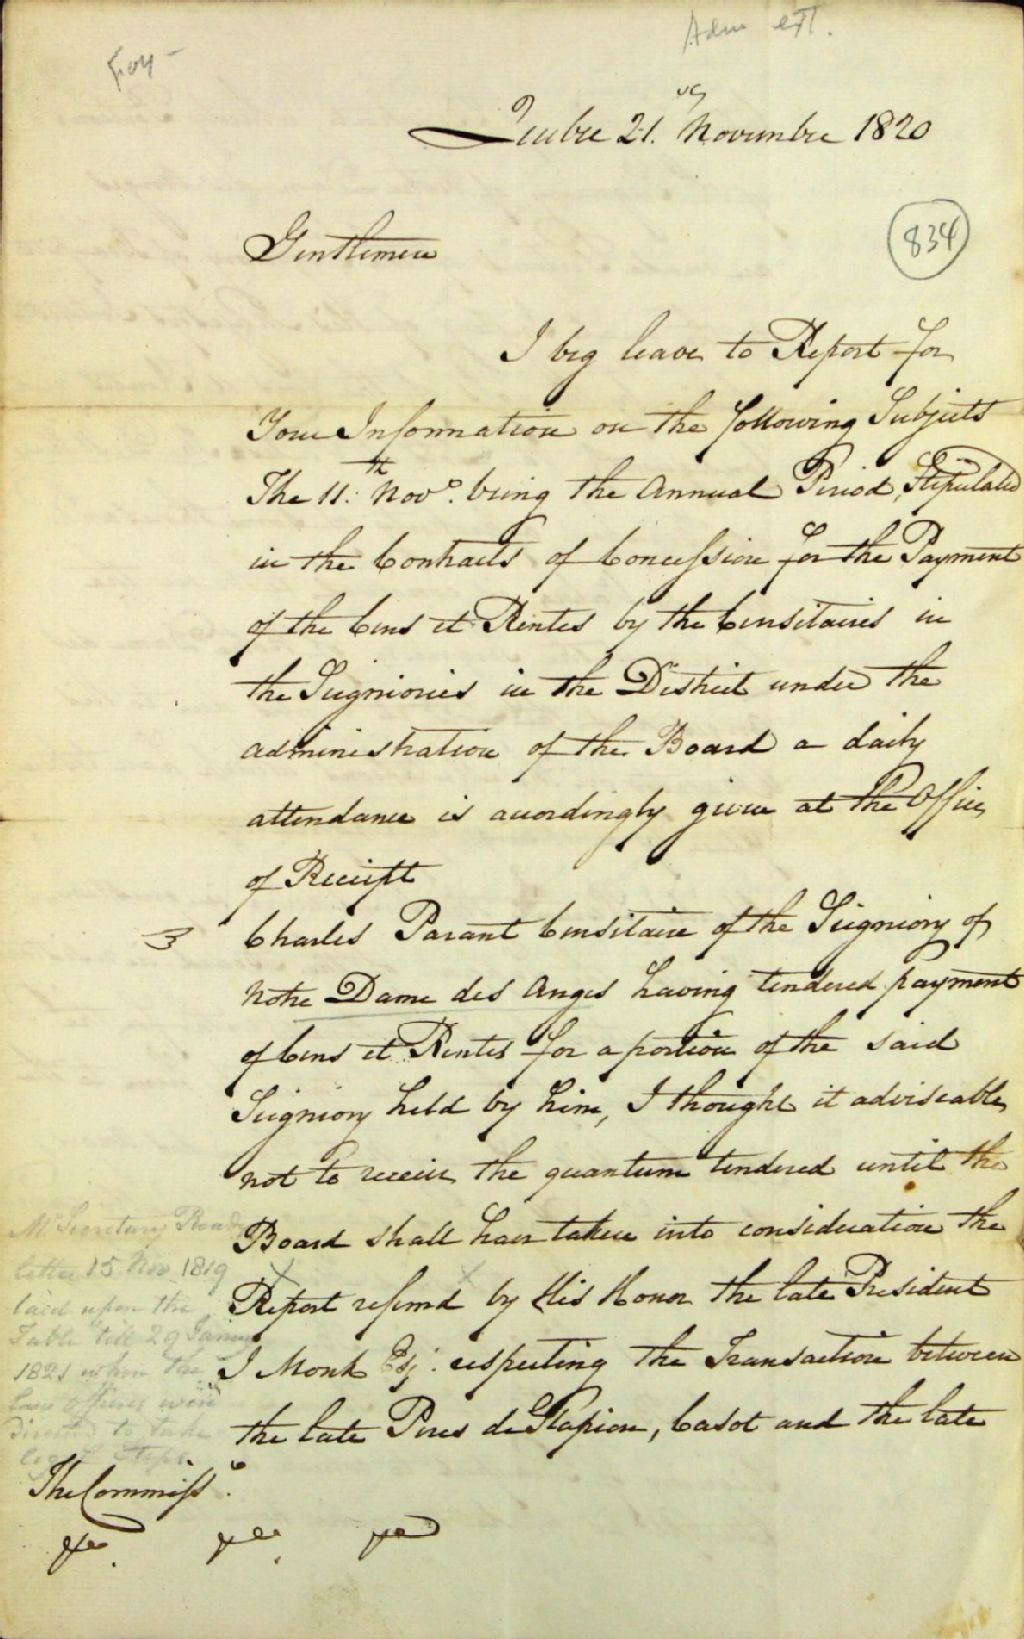 Foy -
Adm est.
Quebec 21. Novembre 1820
834
Gentlemen
I beg leave to Report for
Your Information on the following Subjects
The 11.th Novr. being the Annual Period, Stipulated
in the Contracts of Concession for the Payment
of the Cens et Rentes by the Censitaires in
the Seigniories in the District under the
administration of the Board a daily
attendance is acordingly given at the Office
of Receipt
3 Charles Parant Censitaire of the Seigniory of
Notre Dame des Anges having tendered payment
of Cens et Rentes for a portion of the said
Seigniory held by him, I thought it adviseable
not to receive the quantum tendered until the
Board shall have taken into consideration the
Report referred by His Honor the late President
J Monk Esq. respecting the Transaction between
the late Peres de Glapion, Casot and the late
Mr Secretary Ready
letter 15 Nov 1819
laid upon the
Table till 29 January
1821 when the
law officers were
directed to take
legal steps
The Commissrs.
&c. &c. &c